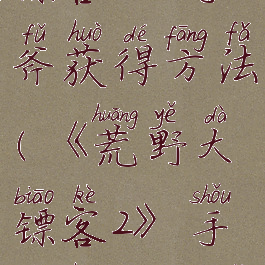 fǔ huò dé fāng fǎ
斧获得方法
huāng yě dà
(《荒野大
biāo kè shǒu
镖客2》 手